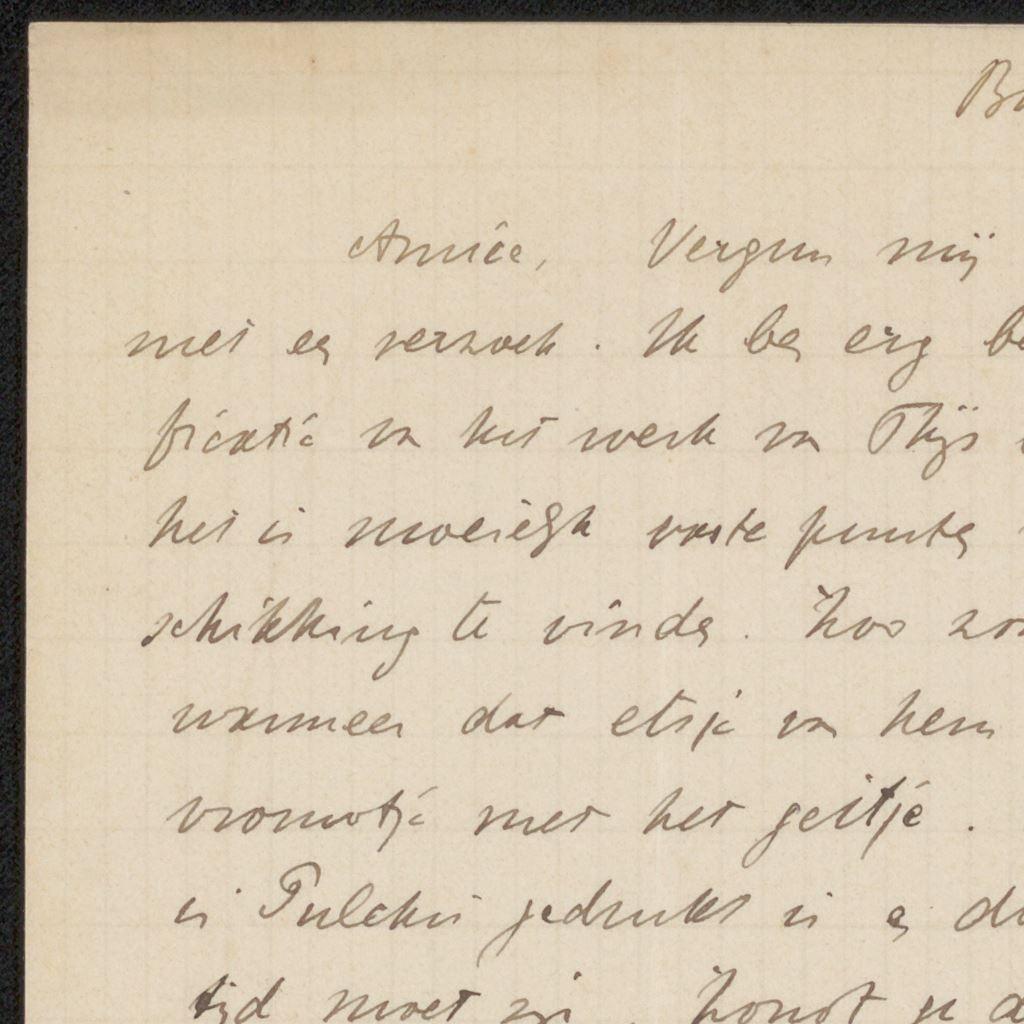 Amice, Vergun mij
met een verzoek. Ik ben erg be
ficatie van het werk van Thijs
het is moeielijk vaste punten
schikking te vinden. Zoo zou
wanneer dat etsje van hem
vrouwtje met het geitje.
in Pulchri gedrukt is en
tijd moet zijn. Zoudt u